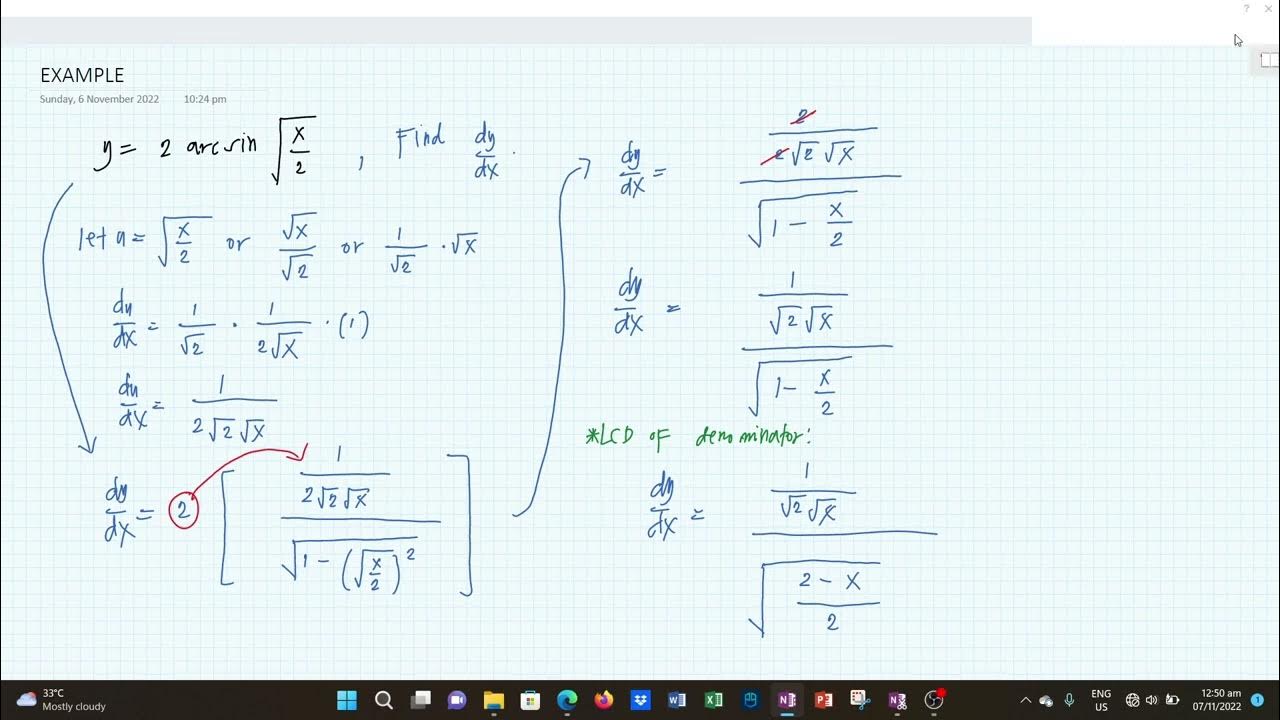 EXAMPLE
Sunday, 6 November 2022 10:24 pm
y = 2 arcsin √(x/2) , Find dy/dx.
let u = √(x/2) or √x/√2 or 1/√2 · √x
du/dx = 1/√2 · 1/(2√x) · (1)
du/dx = 1/(2√2√x)
dy/dx = 2 [ (1/(2√2√x)) / √(1 - (√(x/2))²) ]
dy/dx = (2/(2√2√x)) / √(1 - x/2)
dy/dx = (1/(√2√x)) / √(1 - x/2)
*LCD OF denominator:
dy/dx = (1/(√2√x)) / √((2 - x)/2)
33°C
Mostly cloudy
ENG
US
12:50 am
07/11/2022
1